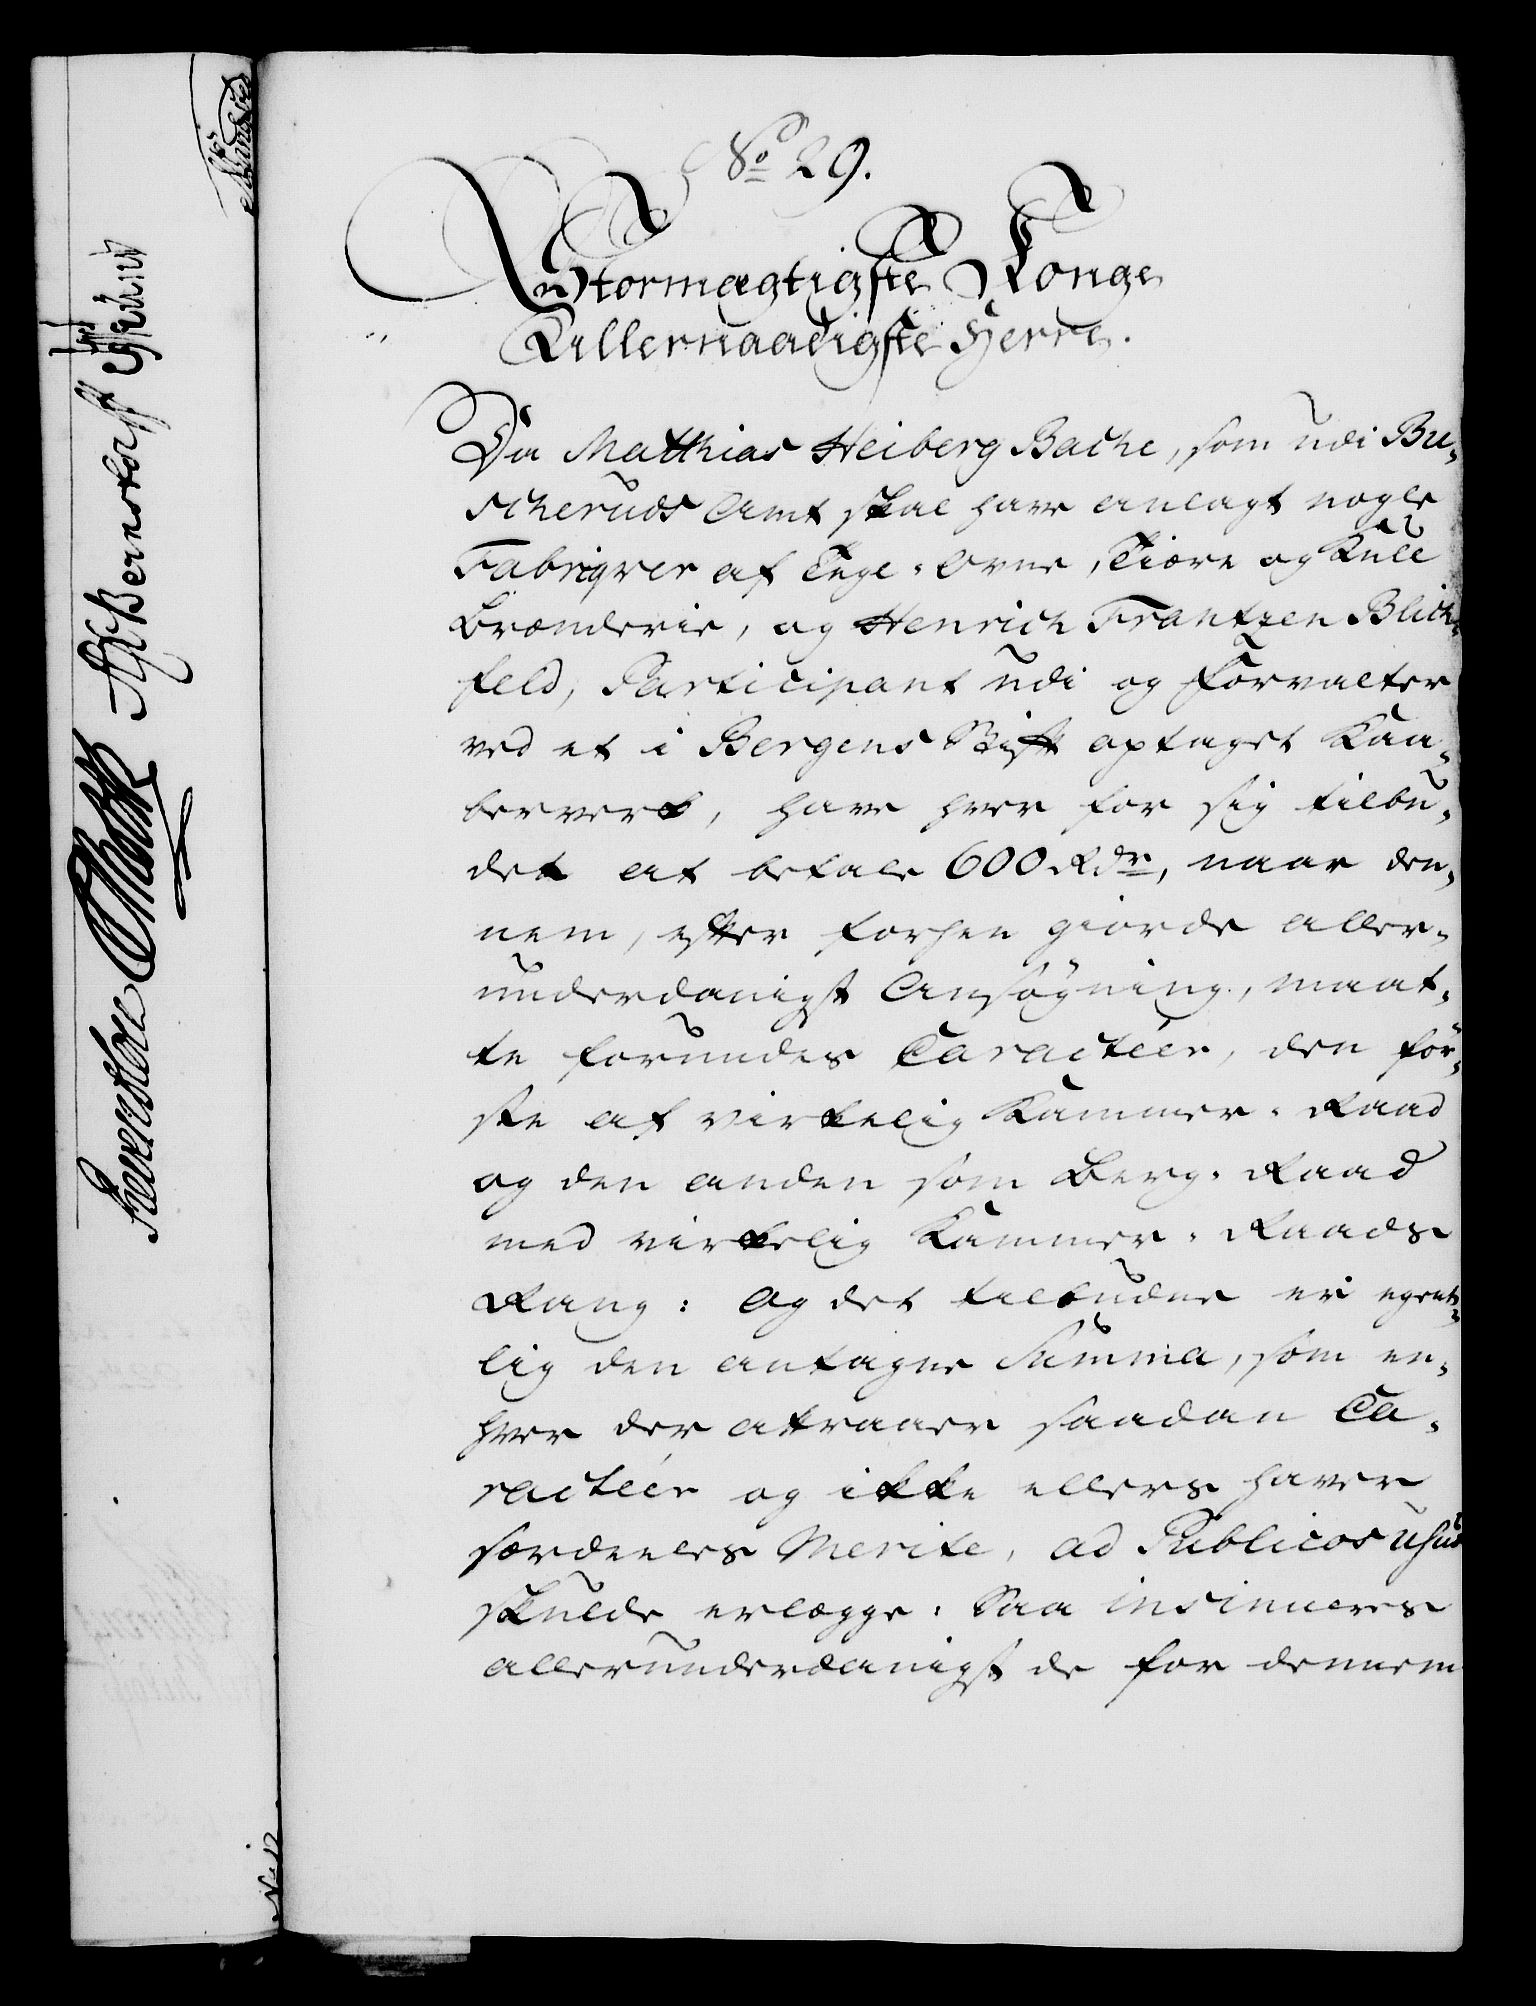 No 29.
Stormægtigste Konge
Allernaadigste Herre.
Da Matthias Heiberg Bache, som udi Bu-
scheruds Amt skal have anlagt nogle
Fabriqver af Tegl-Ovne, Tiære og Kull
Brænderie, og Henrich Frantzen Blich-
feld, Participant udi og Forvalter
ved et i Bergens Stift optaget Kaa-
berverk, have hver for sig tilbu-
det at betale 600 Rdr, naar den-
nem, efter forhen giorde aller-
underdanigst Ansøgning, maat-
te forundes Caracteer, den før-
ste af virkelig Kammer-Raad
og den anden som Berg-Raad
med virkelig Kammer-Raads
Rang: Og det tilbudne er egent-
lig den antagne Summa, som en-
hver der attraaer saadan Ca-
racteer og ikke ellers haver
særdeeles Merite, ad Publicos usus
skulde erlægge: Saa insinueres
allerunderdanigst de for dennem
Reventlow AGMoltke AGBernstorff